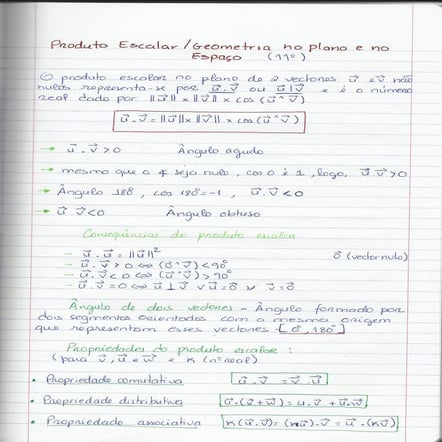 Produto Escalar / Geometria no plano e no
Espaço (11º)
O produto escalar no plano de 2 vectores u⃗ e v⃗ não
nulos representa-se por u⃗ . v⃗ ou u⃗ | v⃗ e é o número
real dado por ||u⃗|| × ||v⃗|| × cos (u⃗ ^ v⃗)
u⃗ . v⃗ = ||u⃗|| × ||v⃗|| × cos (u⃗ ^ v⃗)
→ u⃗ . v⃗ > 0 Ângulo agudo
→ mesmo que o ∢ seja nulo, cos 0 é 1, logo, u⃗ . v⃗ > 0
→ Ângulo 180º, cos 180º = -1, u⃗ . v⃗ < 0
→ u⃗ . v⃗ < 0 Ângulo obtuso
Consequências do produto escalar
- u⃗ . u⃗ = ||u⃗||² 0⃗ (vector nulo)
- u⃗ . v⃗ > 0 ⇔ (u⃗ ^ v⃗) < 90º
- u⃗ . v⃗ < 0 ⇔ (u⃗ ^ v⃗) > 90º
- u⃗ . v⃗ = 0 ⇔ u⃗ ⊥ v⃗ ∨ u⃗ = 0⃗ ∨ v⃗ = 0⃗
Ângulo de dois vectores - Ângulo formado por
dois segmentos orientados com a mesma origem
que representam esses vectores - [0º, 180º]
Propriedades do produto escalar :
(para v⃗, u⃗ e w⃗ e K (nº real)
• Propriedade comutativa u⃗ . v⃗ = v⃗ . u⃗
• Propriedade distributiva u⃗ . (v⃗ + w⃗) = u⃗ . v⃗ + u⃗ . w⃗
• Propriedade associativa K (u⃗ . v⃗) = (K u⃗) . v⃗ = u⃗ . (K v⃗)